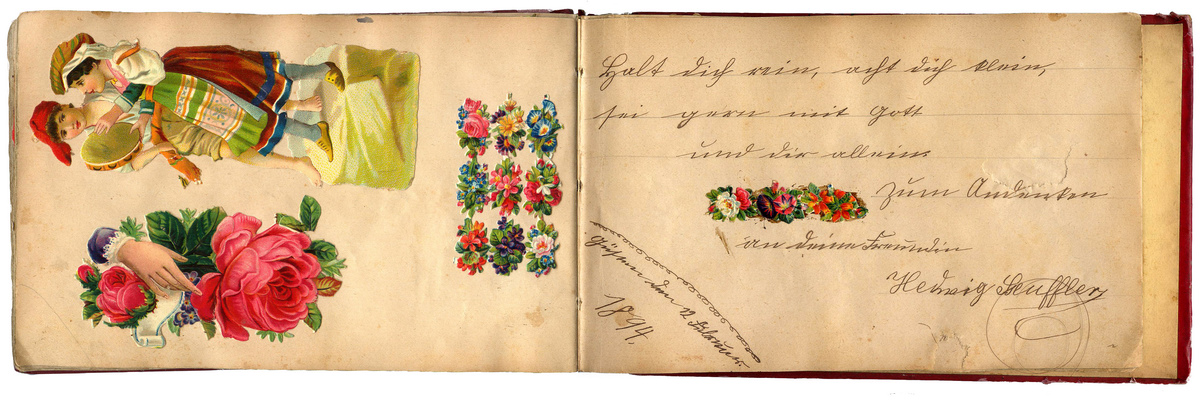 Halt dich rein, acht dich klein,
sei gern mit Gott
und dir allein.
Zum Andenken
an deine Freundin
Hedwig
den 12 Februar
1894.